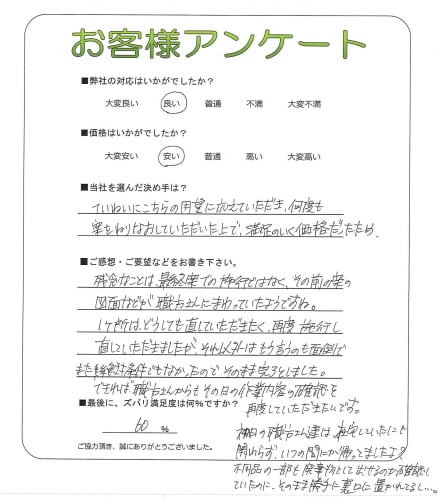 お客様アンケート
■弊社の対応はいかがでしたか？
大変良い 良い 普通 不満 大変不満
■価格はいかがでしたか？
大変安い 安い 普通 高い 大変高い
■当社を選んだ決め手は？
ていねいにこちらの用望に応えていただき、何度も
案をねりなおしていただいた上で、満足のいく価格だったため。
■ご感想・ご要望などをお書き下さい。
残念なことは、最終案での施行ではなく、その前の案の
図面などが職方さんにまわっていたようですね。
1ヶ所は、どうしても直していただきたく、再度施行し
直していただきましたが、それ以外はもう言うのも面倒で
また絶対条件でもなかったのでそのまま完了としました。
できれば職方さんからもその日の作業内容の確認を
再度していただきたいです。
■最後に、ズバリ満足度は何％ですか？
60 %
ご協力頂き、誠にありがとうございました。
初日の職方さん達は、在宅していたにも
関わらず、いつの間にか帰ってましたよ？
不用品の一部も廃棄物として出せるのか確認して
いたのに、そのまま勝手に裏口に置かれてるし…。